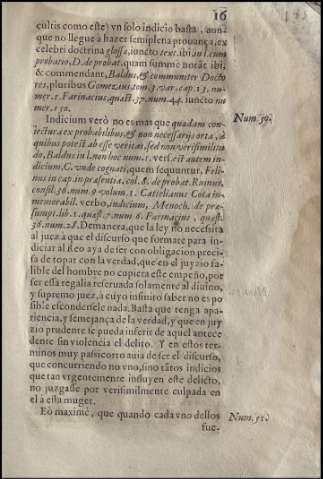 16
cultis como este) vn solo indicio basta, aunq̃
que no llegue a hazer semiplena prouança, ex
celebri doctrina glossa, iuncto text. ibi, in l. cum
probatio, D. de probat. quam summè notãt ibi,
& commendant, Baldus, & communiter Docto
res, pluribus Gomezius, tom. 3. var. cap. 13. nu-
mer. 1. Farinacius, quæst. 37. num. 44. iuncto nu
mer. 150.
Indicium verò no es mas que quædam con
iectura ex probabilibus, & non necessarijs orta, à
quibus potest abesse veritas, sed non verisimilitu
do, Baldus in l. non hoc num. 1. vers. est autem in
dicium, C. vnde cognati, quem sequuntur, Feli-
nus in cap. in præsentia, col. 8. de probat. Ruinus,
consil. 36. num. 9. volum. 1. Catelianus Cota in
memorabil. verbo, indicium, Menoch. de præ-
sumpt. lib. 1. quæst. 7. num. 6. Farinacius, quæst.
36. num. 28. Demanera, que la ley no necesita
al juez a que el discurso que formare para in-
diciar al Reo aya de ser con obligacion preci-
sa de topar con la verdad, que en el juyzio fa
lible del hombre no cupiera este empeño, por
ser esta regalia reseruada solamente al diuino,
y supremo juez, à cuyo infinito saber no es po
sible escondersele nada. Basta que tenga apa-
riencia, y semejança de la verdad, y que en juy
zio prudente se pueda inferir de aquel antece
dente sin violencia el delito. Y en estos ter-
minos muy passicorto auia de ser el discurso,
que concurriendo no vno, sino tãtos indicios
que tan vrgentemente influyen este delicto,
no juzgasse por verisimilmente culpada en
el a esta muger.
Eò maximè, que quando cada vno dellos
fue-
Num. 50.
Num. 51.